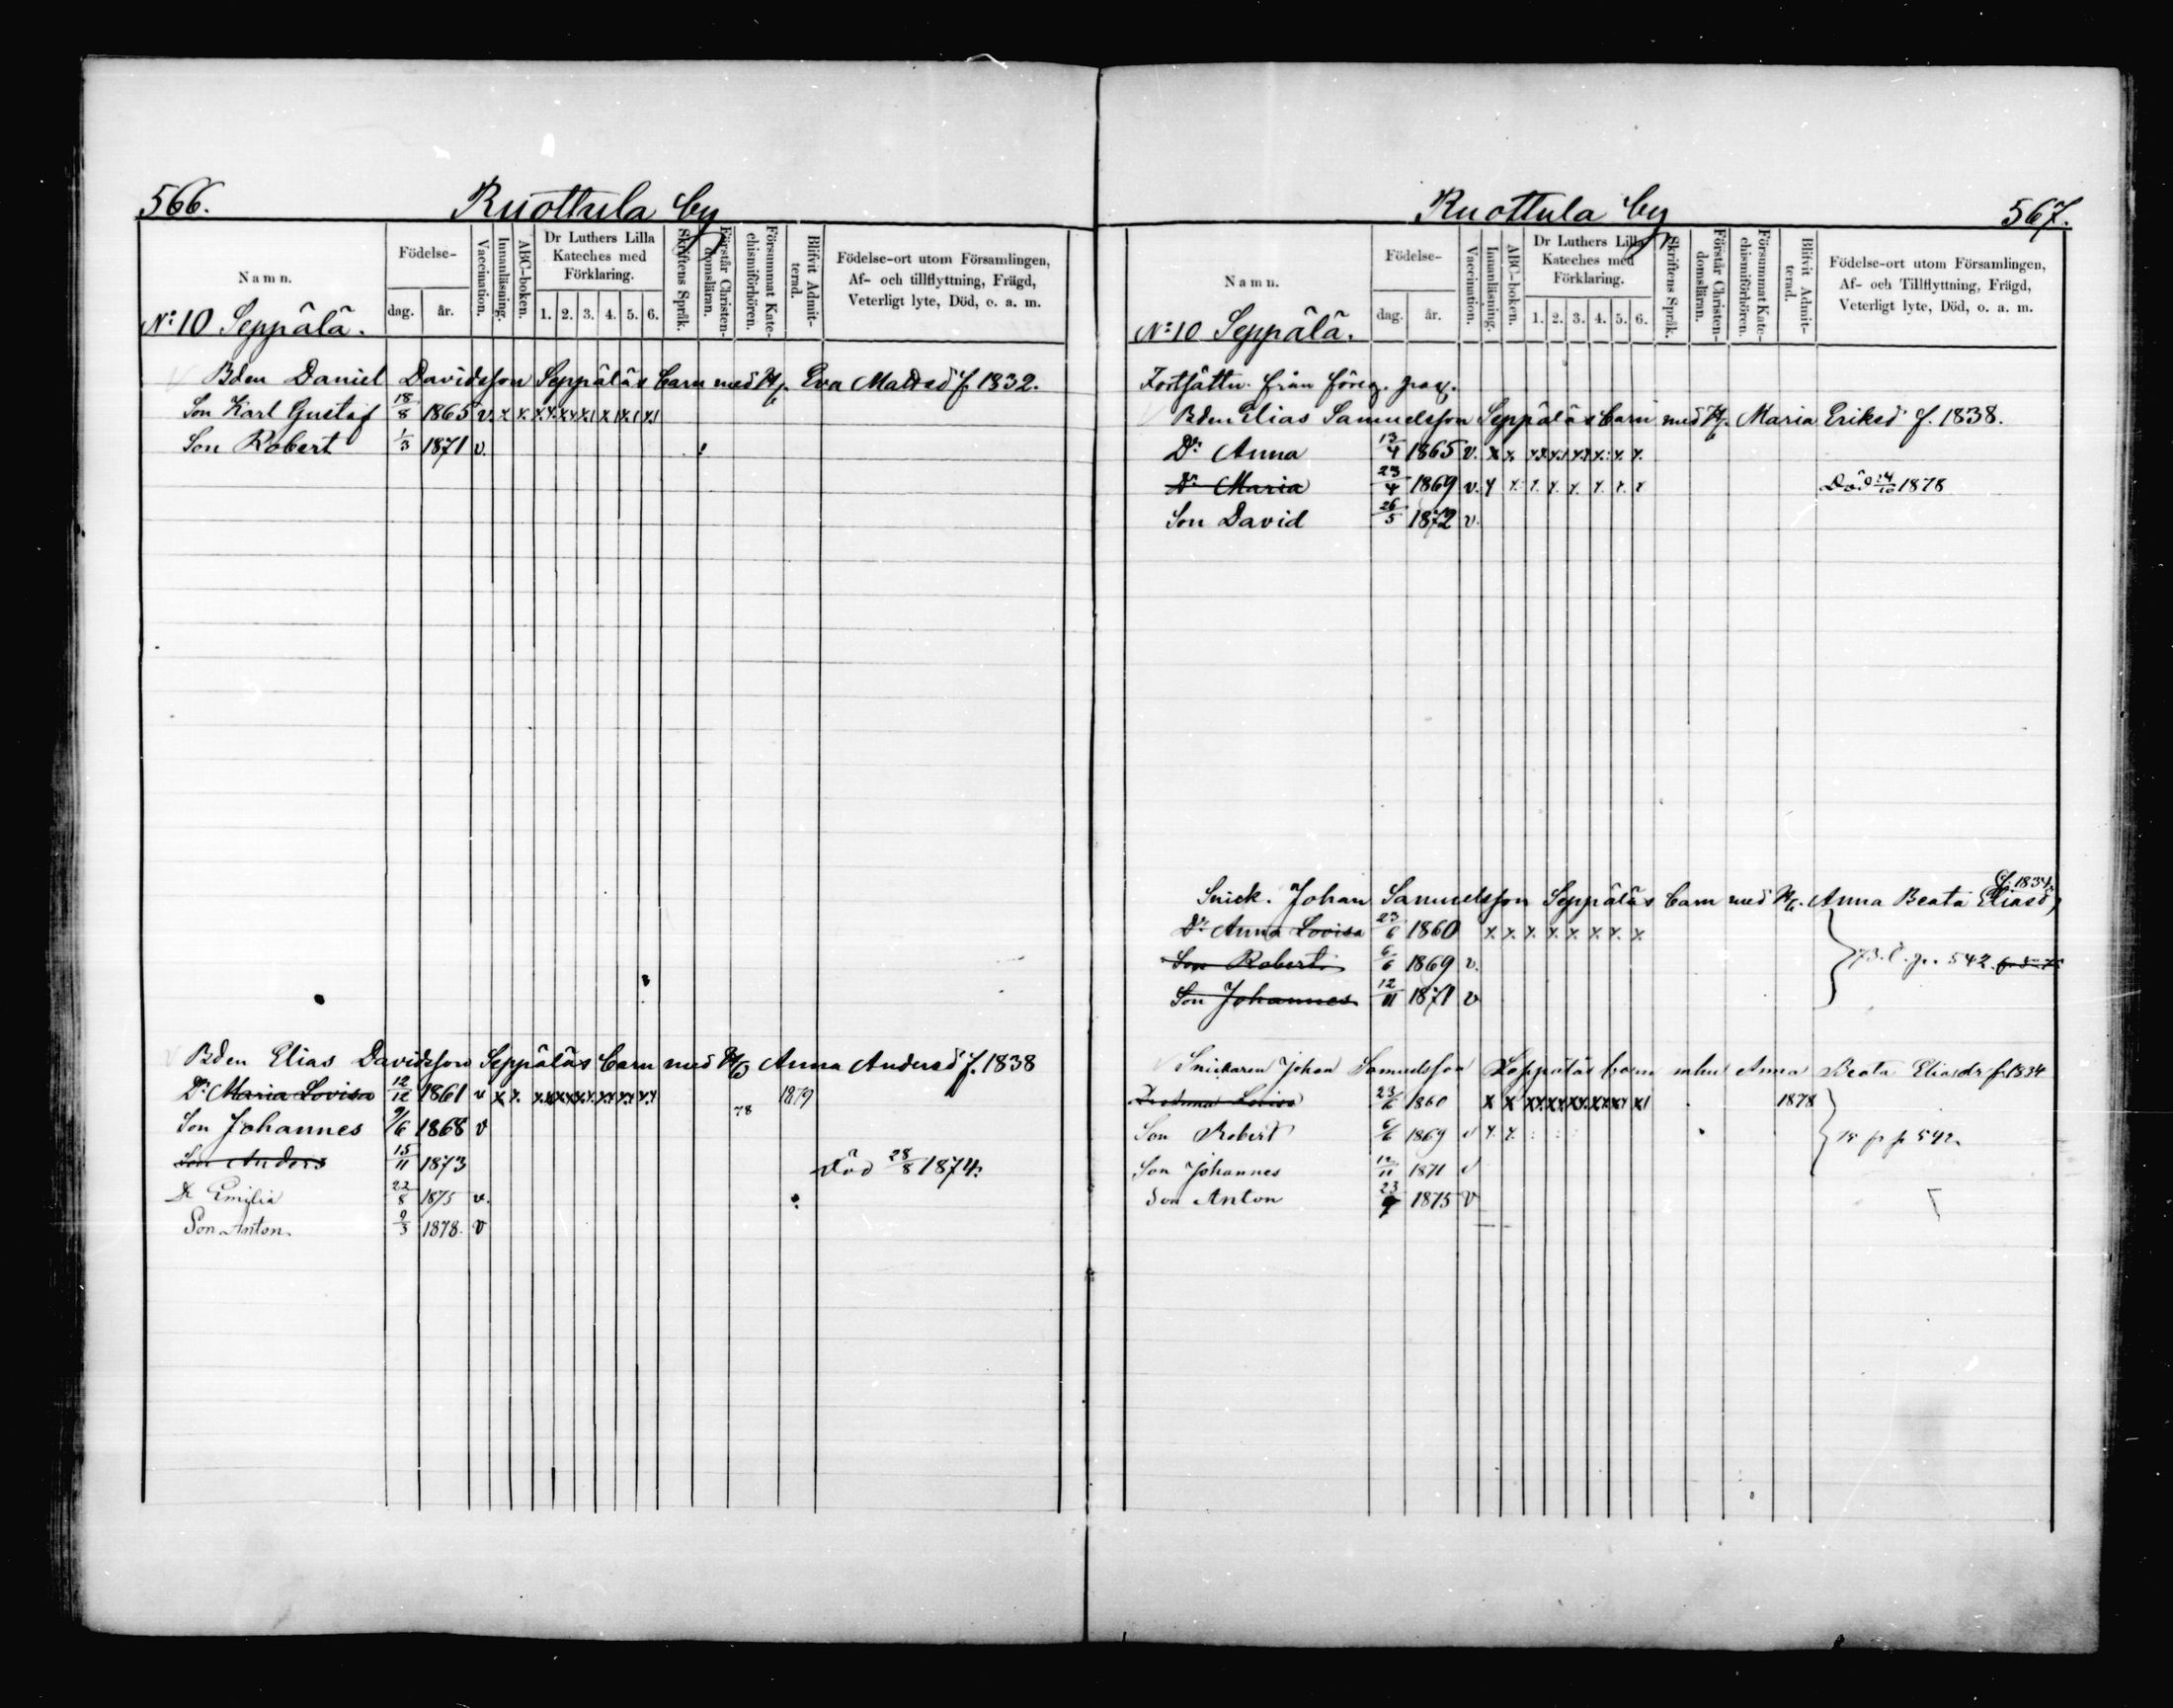 566. Ruottula by
Namn.
Födelse-
dag. år.
Vaccination.
Innanläsning.
ABC-boken.
Dr Luthers Lilla Kateches med Förklaring.
1. 2. 3. 4. 5. 6.
Skriftens Språk.
Förstår Christendomsläran.
Försummat Katechismiförhören.
Blifvit Admitterad.
Födelse-ort utom Församlingen,
Af- och tillflyttning, Frägd,
Veterligt lyte, Död, o. a. m.
No 10 Seppälä.
Bden Daniel Davidsson Seppäläs barn med H/. Eva Mattsd f. 1832.
Son Karl Gustaf 18/8 1865 v. x x
Son Robert 1/3 1871 v.
Bden Elias Davidsson Seppäläs barn med H/ Anna Andersd f. 1838
Dr Maria Lovisa 12/12 1861 v x x. 1879
Son Johannes 9/6 1868 v 78
Son Anders 15/11 1873 Död 28/8 1874.
Dr Emilia 22/8 1875 v.
Son Anton 9/3 1878. v
Ruottula by 567.
Namn.
Födelse-
dag. år.
Vaccination.
Innanläsning.
ABC-boken.
Dr Luthers Lilla Kateches med Förklaring.
1. 2. 3. 4. 5. 6.
Skriftens Språk.
Förstår Christendomsläran.
Försummat Katechismiförhören.
Blifvit Admitterad.
Födelse-ort utom Församlingen,
Af- och Tillflyttning, Frägd,
Veterligt lyte, Död, o. a. m.
No 10 Seppälä.
Fortsättn. från föreg. pag.
Bden Elias Samuelsson Seppäläs barn med H/. Maria Eriksd f. 1838.
Dr Anna 13/4 1865 v. x x.
Dr Maria 23/4 1869 v. x x. x. x. x. x. x. x Död 24/10 1878
Son David 26/5 1872 v.
Snick. Johan Samuelsson Seppäläs barn med H/. Anna Beata Eliasd, f. 1834
Dr Anna Lovisa 23/6 1860 x. x. x. x. x. x. x. x.
Son Robert 6/6 1869 v.
Son Johannes 12/11 1871 v
p. 542.
Snickaren Johan Samuelsson Seppäläs barn mhu Anna Beata Eliasdr f. 1834
Dr Anna Lovisa 23/6 1860 x x 1878
Son Robert 6/6 1869 v x. x. p 542
Son Johannes 12/11 1871 v
Son Anton 23/7 1875 v